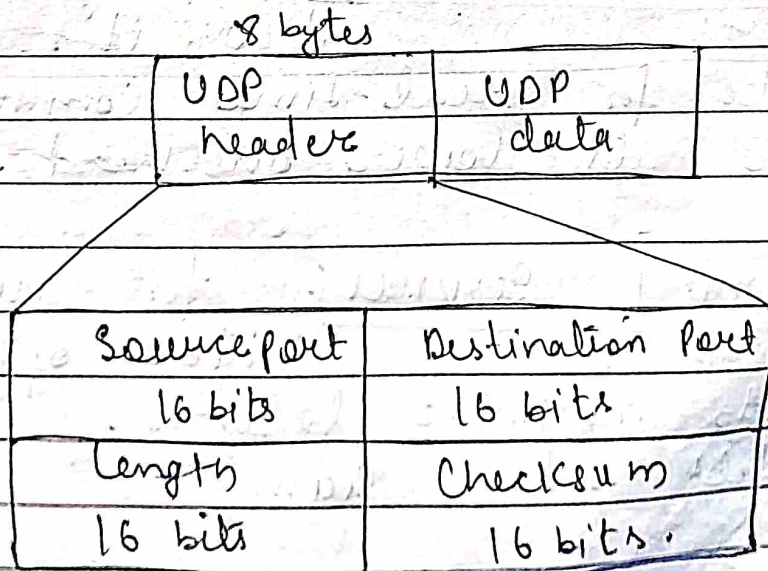 8 bytes
UDP UDP
header data
Source port Destination Port
16 bits 16 bits
Length Checksum
16 bits 16 bits.